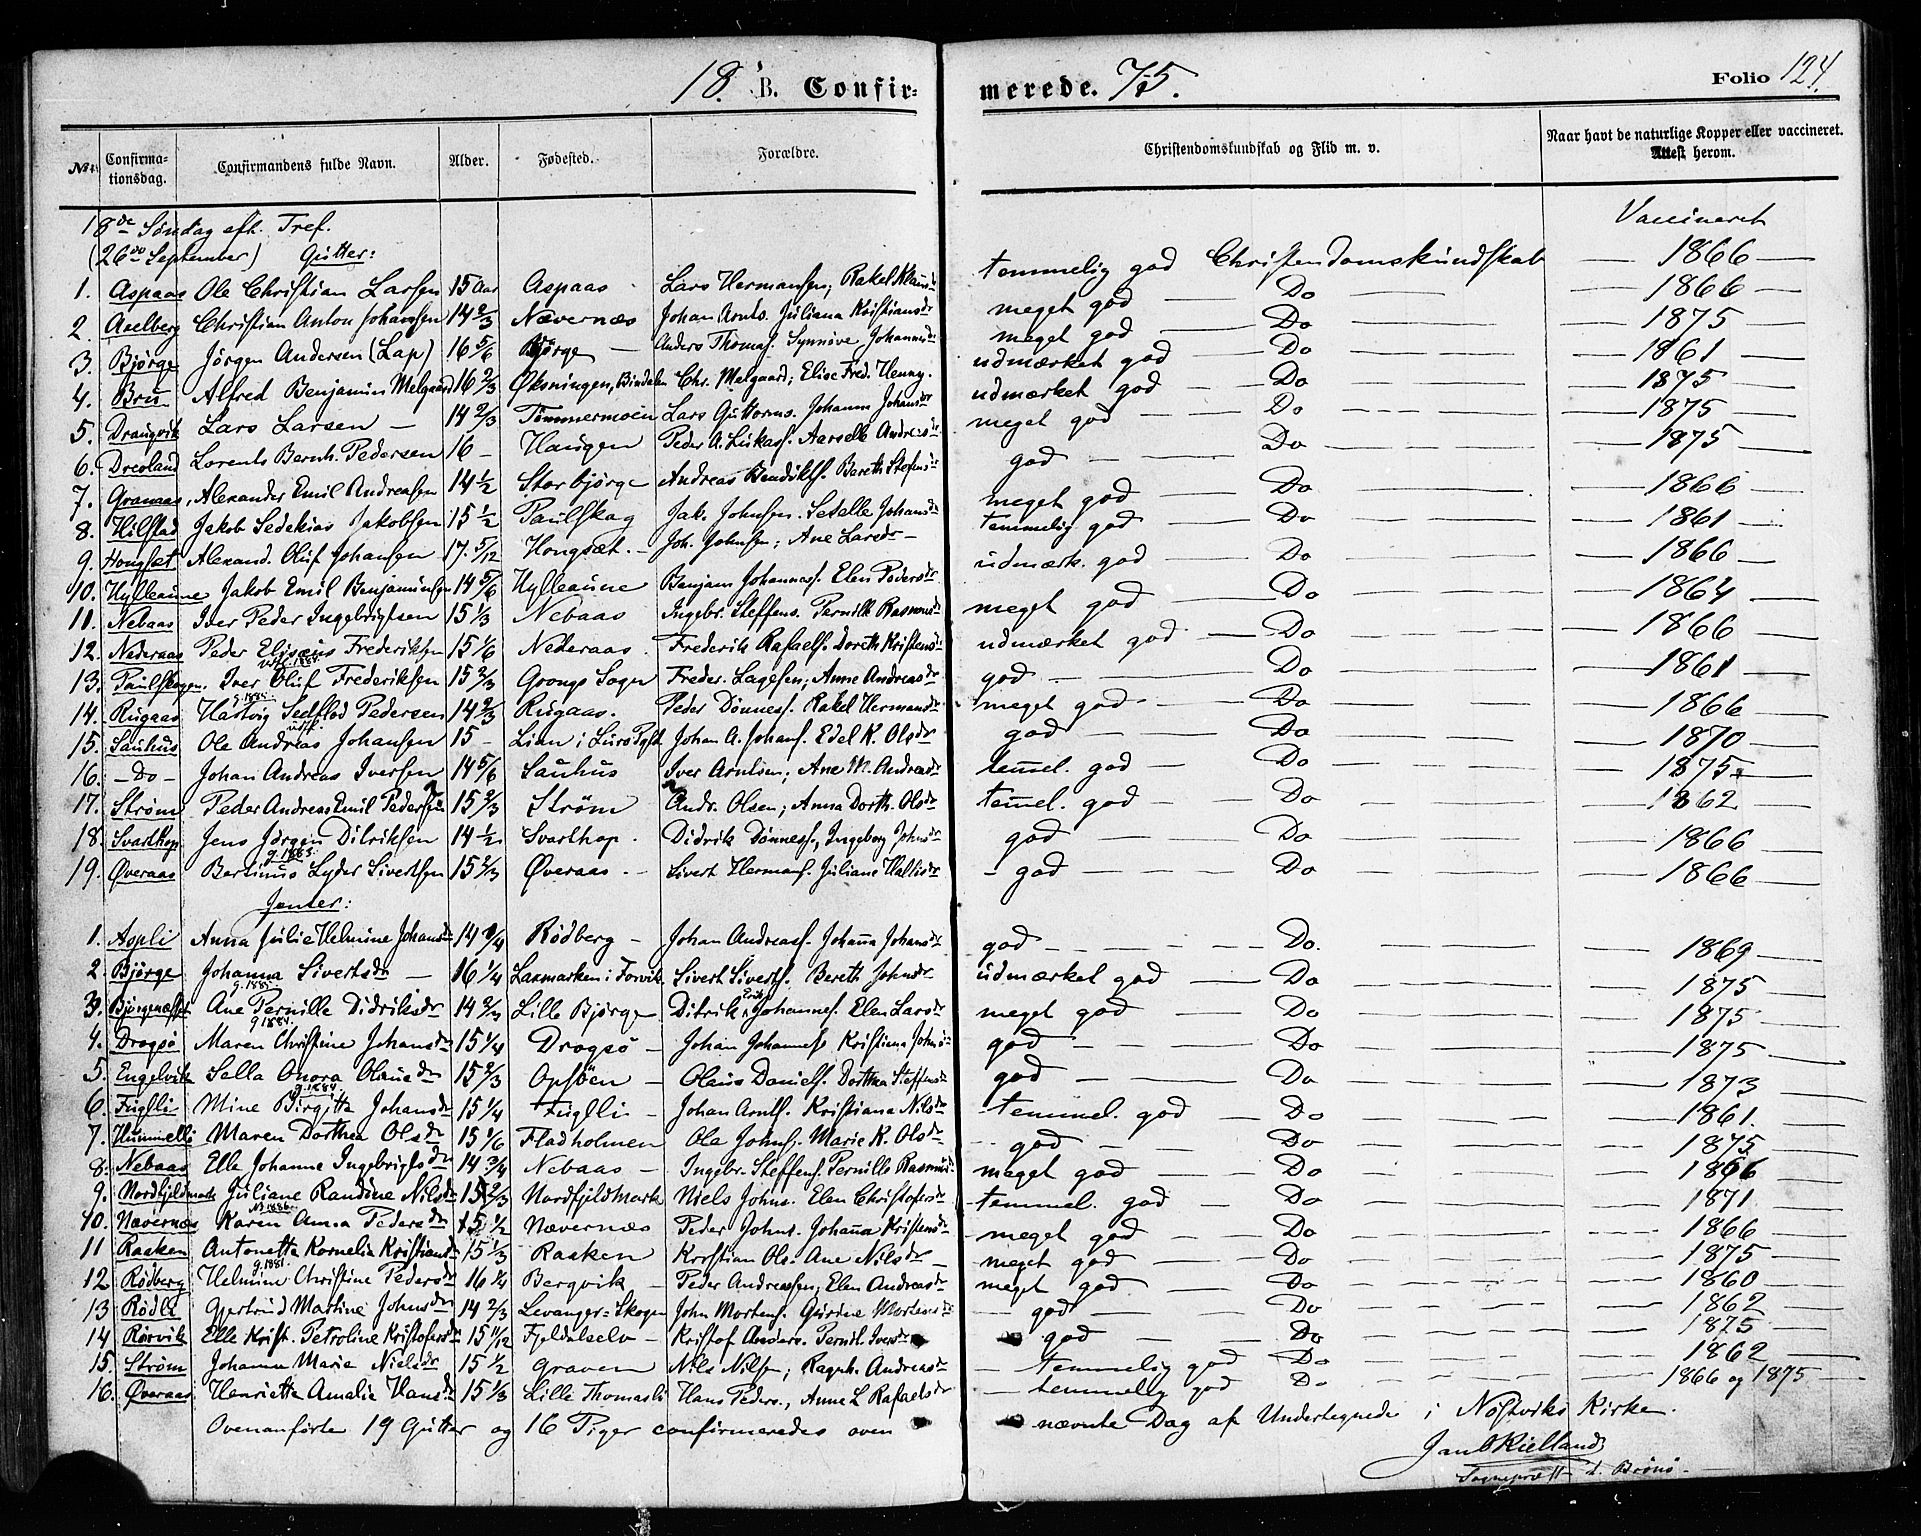 18 B. Confirmerede. 75.
Folio 124.
No. Confirmationsdag. Confirmandens fulde Navn. Alder. Fødested. Forældre. Christendomskundskab og Flid m. v. Naar havt de naturlige Kopper eller vaccineret. Attest herom.
18de Søndag eft. Tref. Vaccineret
(26de September) Gutter:
1. Aspaas Ole Christian Larsen 15 Aar Aspaas Lars Hermansen; Rakel Klausdr temmelig god Christendomskundskab 1866
2. Axelberg Christian Anton Johansen 14 2/3 Nævernæs Johan Arnts. Juliana Kristiansdr meget god Do 1866
3. Bjørge Jørgen Andersen (Lap) 16 5/6 Bjørge Anders Thomas. Synnøve Johannesdr meget god Do 1875
4. Brun Alfred Benjamin Melgaard 16 2/3 Øksningen, Bindalen Chr. Melgaard; Elise Fred. Henny. udmærket god Do 1861
5. Draugvik Lars Larsen 14 2/3 Tømmermoen Lars Guttorms. Johanna Johansdr udmærket god Do 1875
6. Drevland Lorents Bernh. Pedersen 16 Haugen Peder A. Lukass. Aarselle Andreasdr meget god Do 1875
7. Granaas, Alexander Emil Andreasen 14 1/2 Storbjørge Andreas Bendikts. Bereth Stefensdr god Do 1875
8. Hilstad Jakob Sedekias Jakobsen 15 1/2 Paulskag Jak. Johnsen. Setelle Johansdr meget god Do 1866
9. Hongset Alexand. Oluf Johansen 17 5/12 Hongsæt Joh. Johnsen; Ane Larsdr temmelig god Do 1861
10. Hylleaune Jakob Emil Benjaminsen 14 5/6 Hylleaune Benjam Johannes. Elen Pedersdr udmærk. god Do 1866
11. Nebaas Iver Peder Ingebrigtsen 15 1/3 Nebaas Ingebr. Steffens. Pernille Rasmusdr meget god Do 1864
12. Nederaas Peder Elisæus Frederiksen 15 1/6 Nederaas Frederik Rafaels. Doreth Kristensdr udmærket god Do 1866
13. Paulskogen. Iver Oluf Frederiksen 15 2/3 Grongs Sogn Freder. Lagesen; Anne Andreasdr god Do 1861
14. Rugaas Hartvig Sedflod Pedersen 14 2/3 Rugaas. Peder Dønnes. Rakel Hermansdr meget god Do 1866
15. Sauhus Ole Andreas Johansen 15 Lian i Lurø Pgld Johan A. Johans. Edel K. Olsdr god Do 1870
16. Do Johan Andreas Iversen 14 5/6 Sauhus Iver Arntsen; Ane M. Andreasdr temmel. god Do 1875
17. Strøm Peder Andreas Emil Pedersen 15 2/3 Strøm Andr. Olsen; Anna Dorth. Olsdr temmel. god Do 1862
18. Svarthop Jens Jørgen Ditriksen 14 1/2 Svarthop. Didrik Dønness., Ingeborg Johnsdr god Do 1866
19. Øveraas Bertinus Lyder Sivertsen 15 2/3 Øveraas. Sivert Hermans. Juliane Hallisdr god Do 1866
Jenter:
1. Aspli Anna Julie Helmine Johansdr 14 3/4 Rødberg Johan Andreas. Johana Johansdr god Do. 1869
2. Bjørge Johanna Sivertsdr 16 1/4 Laxmarken i Forvik. Sivert Siverts. Bereth Johnsdr udmærket god Do 1875
3. Bjørgenæsset Ane Pernille Didriksdr 14 2/3 Lille Bjørge Ditrik Johannes. Elen Larsdr meget god Do 1875
4. Drogsø Maren Christine Johansdr 15 1/4 Drogsø Johan Johannes Kristiana Johnsdr god Do 1875
5. Engelvik Salla Onora Olausdr 15 2/3 Opsøen Olaus Daniels. Dorthea Steffensdr god Do 1873
6. Fuglli Mine Birgitta Johansdr 15 1/4 Fuglli Johan Arnts. Kristiana Nilsdr temmel. god Do 1861.
7. Hummelli Maren Dorthea Olsdr 15 1/6 Fladholmen Ole Johns; Marie K. Olsdr god Do 1875
8. Nebaas Elle Johanna Ingebrigtsdr 14 3/4 Nebaas Ingebr. Steffens. Pernille Rasmusdr meget god Do 1866
9. Nordfjeldmark Juliane Randine Nilsdr 15 2/3 Nordfjeldmark Niels Johns. Elen Christofersdr temmel. god Do 1871
10. Nævernæs Karen Anna Pedersdr 15 1/2 Nævernæs Peder Johns. Johana Kristensdr meget god Do 1866
11 Raaken Antonetta Kornelia Kristiansdr 15 1/3 Raaken Kristian Ols. Ane Nilsdr meget god Do 1875
12 Rødberg Helmine Christine Pedersdr 16 1/4 Bergvik Peder Andreassen; Elen Andreasdr meget god Do 1860
13 Rødli Gjertrud Martine Johnsdr 14 2/3 Levanger=Skogen John Mortens. Gurine Mortensdr god Do 1862
14 Rørvik Elle Krist. Petroline Kristofersdr 15 11/12 Fjeldalselv Kristof Anders. Pernil. Iversdr god Do 1875
15. Strøm Johanna Marie Nielsdr 15 1/2 Graven Nils Nilsen; Ragnh. Andreasdr temmelig god Do 1862
16. Øveraas Henrietta Amalia Hansdr 15 1/3 Lille Thomasli Hans Peders., Anne L Rafaelsdr temmelig god Do 1866 og 1875
Ovenanførte 19 Gutter og 16 Piger confirmeredes oven nævnte Dag af Undertegnede i Nøstviks Kirke.
Jan C Kielland
Sognepræst t. Brønø